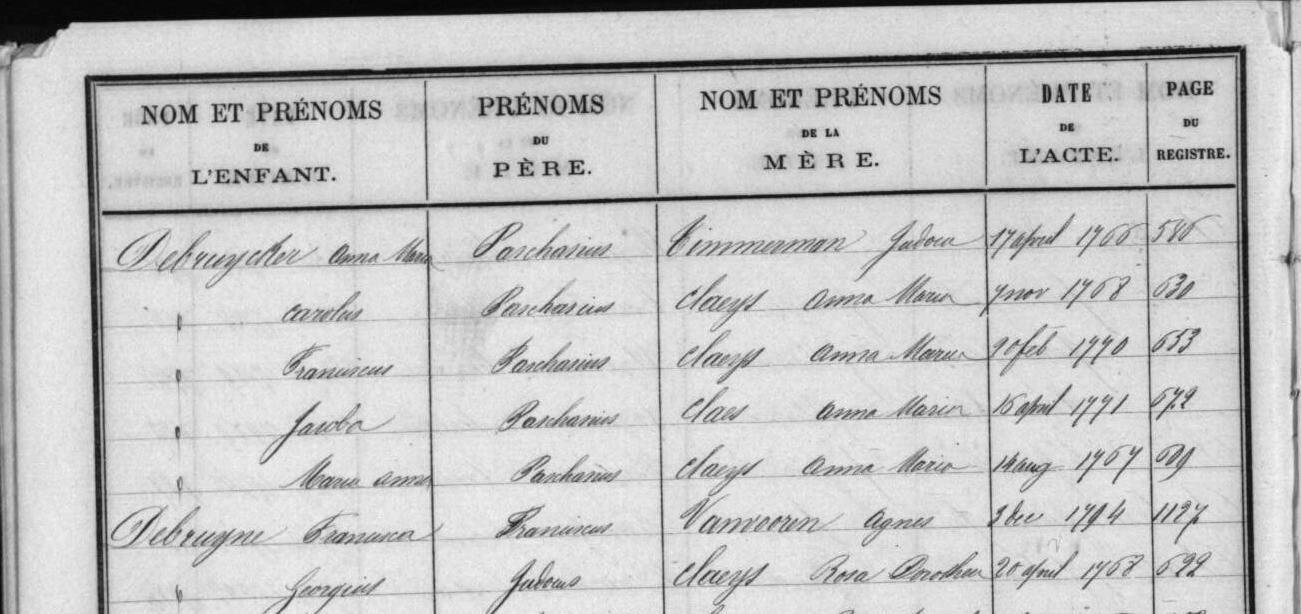 NOM ET PRÉNOMS DE L'ENFANT. PRÉNOMS DU PÈRE. NOM ET PRÉNOMS DE LA MÈRE. DATE DE L'ACTE. PAGE DU REGISTRE.
Debruycker Anna Maria Paschasius Timmerman Judoca 17 april 1766 586
" Carolus Paschasius Claeys Anna Maria 7 nov 1768 630
" Franciscus Paschasius Claeys Anna Maria feb 1770 653
" Jacoba Paschasius Claes Anna Maria 16 april 1771 672
" Maria Anna Paschasius Claeys Anna Maria 14 aug 1767 609
Debruyne Francisca Franciscus Vanvooren Agnes 3 dec 1794 1127
" Georgius Judocus Claeys Rosa Dorothea 20 april 1768 622